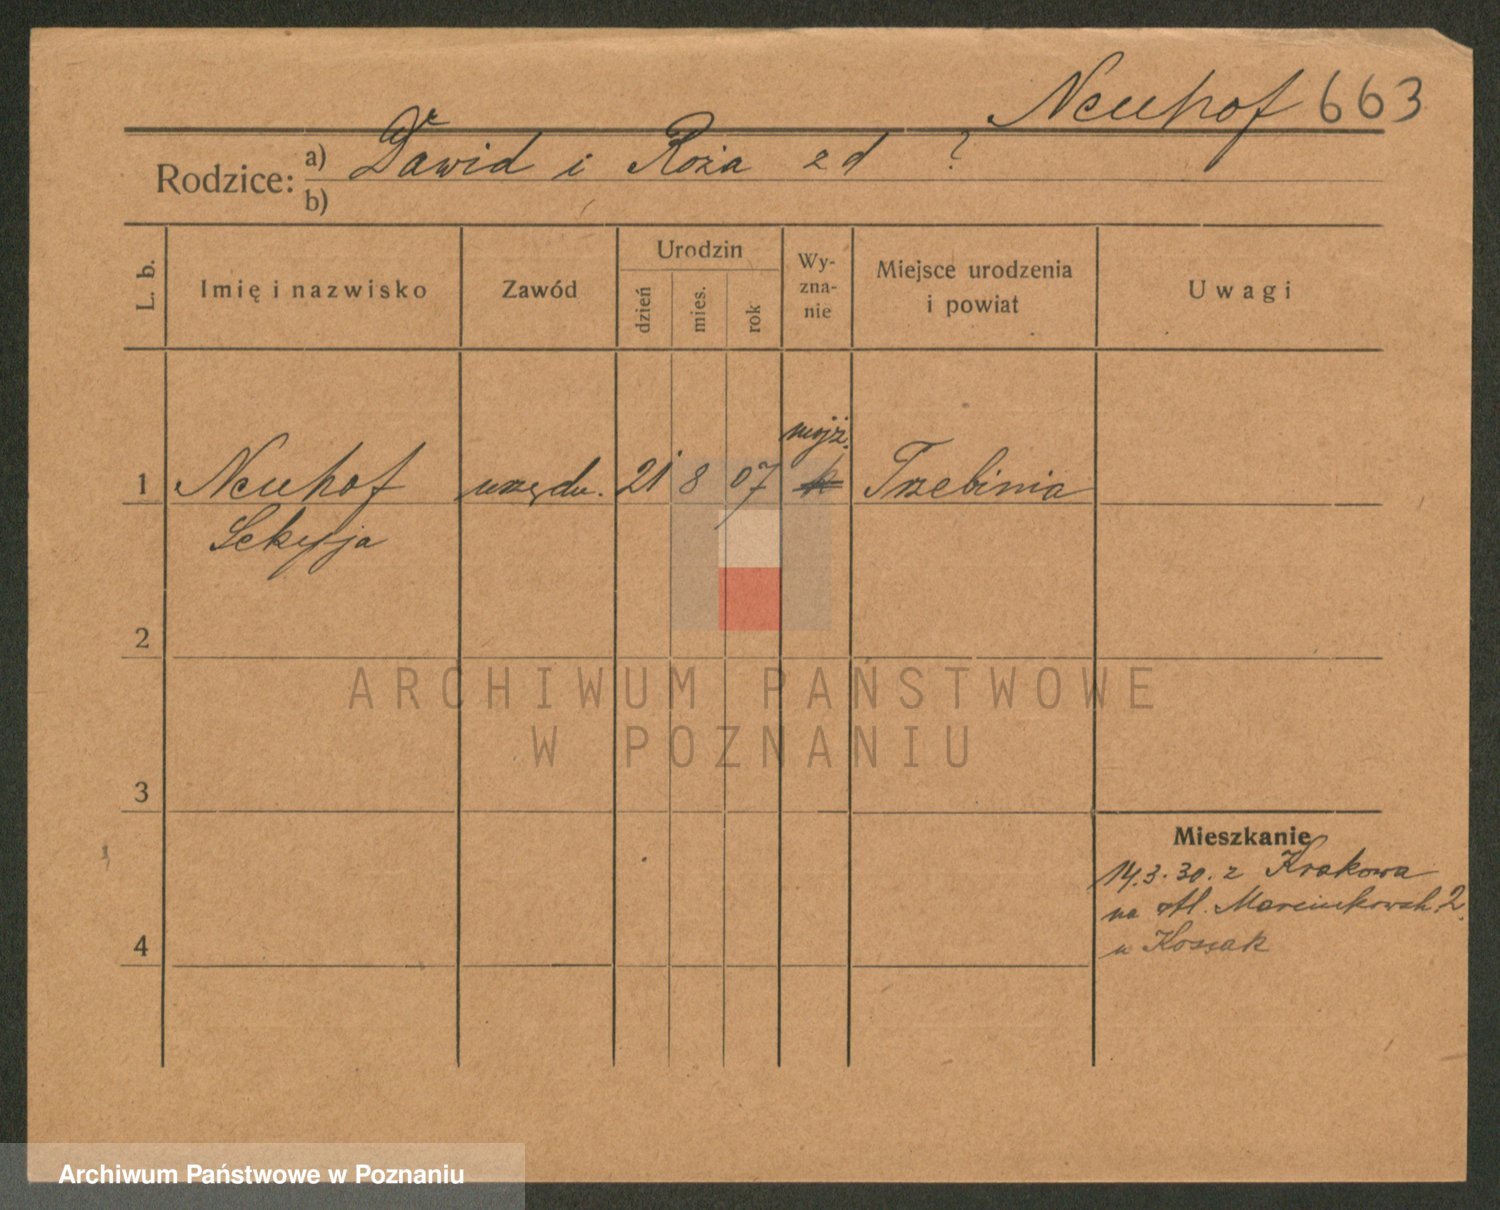 Neuhof 663
Rodzice: a) Dawid i Roża zd ?
b)
L. b.
Imię i nazwisko
Zawód
Urodzin
dzień
mies.
rok
Wy-
zna-
nie
Miejsce urodzenia
i powiat
Uwagi
mojż.
1 Neuhof urzędn. 21 8 07 Trzebinia
2
3
4
Mieszkanie
14.3.30. z Krakowa
na Al. Marcinkowsk. 2
u Kossak
ARCHIWUM PAŃSTWOWE
W POZNANIU
Archiwum Państwowe w Poznaniu